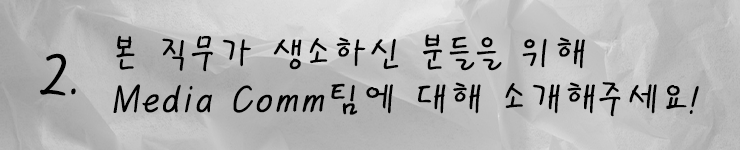 2. 본 직무가 생소하신 분들을 위해
Media Comm팀에 대해 소개해주세요!